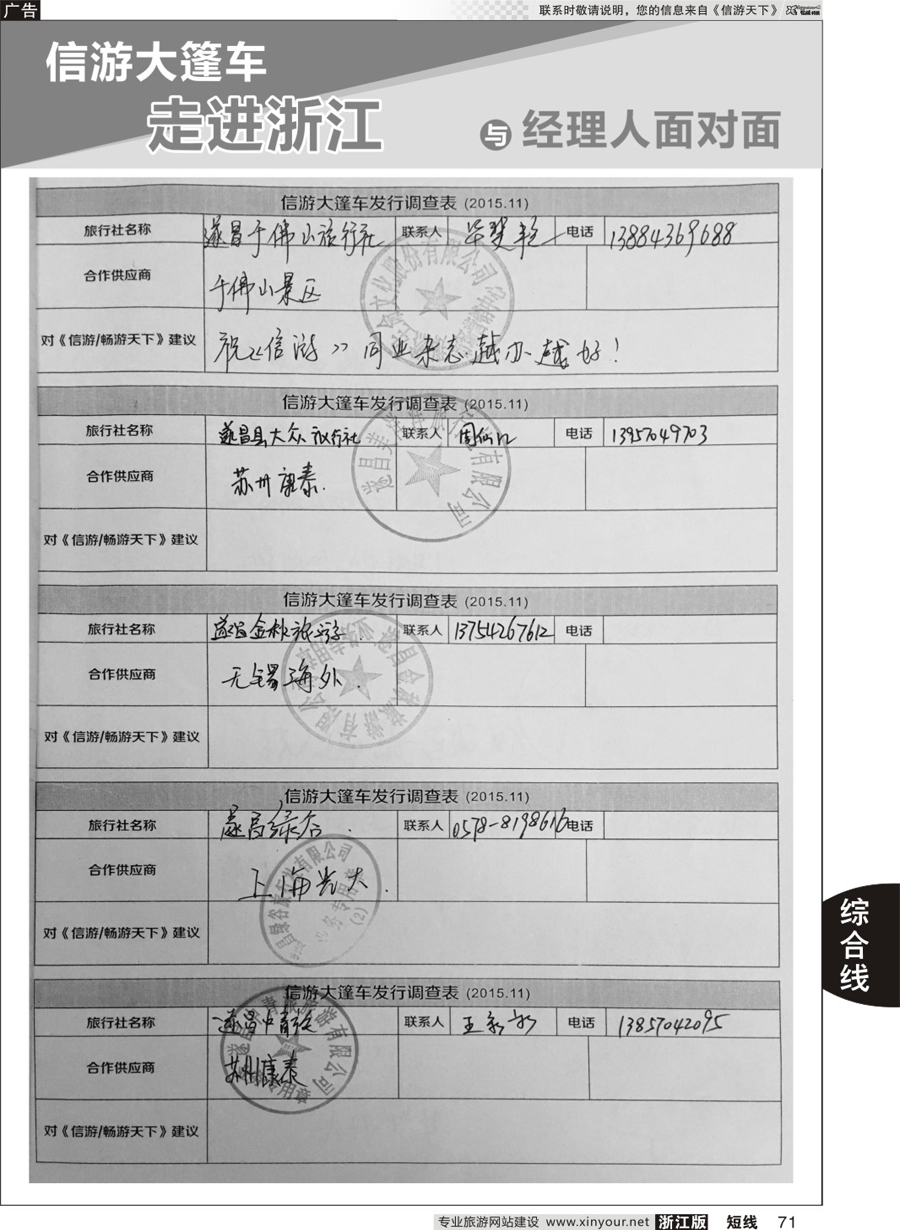 广告
联系时敬请说明，您的信息来自《信游天下》
信游大篷车
走进浙江
与 经理人面对面
信游大篷车发行调查表 (2015.11)
旅行社名称 遂昌千佛山旅行社 联系人 电话 13884369688
合作供应商 千佛山景区
对《信游/畅游天下》建议 祝《信游》同业杂志越办越好！
信游大篷车发行调查表 (2015.11)
旅行社名称 遂昌县大众旅行社 联系人 电话 13957049703
合作供应商 苏州康泰.
对《信游/畅游天下》建议
信游大篷车发行调查表 (2015.11)
旅行社名称 遂昌金秋旅游. 联系人 13754267612 电话
合作供应商 无锡海外.
对《信游/畅游天下》建议
信游大篷车发行调查表 (2015.11)
旅行社名称 遂昌绿谷. 联系人 0578-8198616 电话
合作供应商 上海光大.
对《信游/畅游天下》建议
信游大篷车发行调查表 (2015.11)
旅行社名称 遂昌中青旅 联系人 电话 13857042095
合作供应商 苏州康泰
对《信游/畅游天下》建议
综合线
专业旅游网站建设 www.xinyour.net 浙江版 短线 71